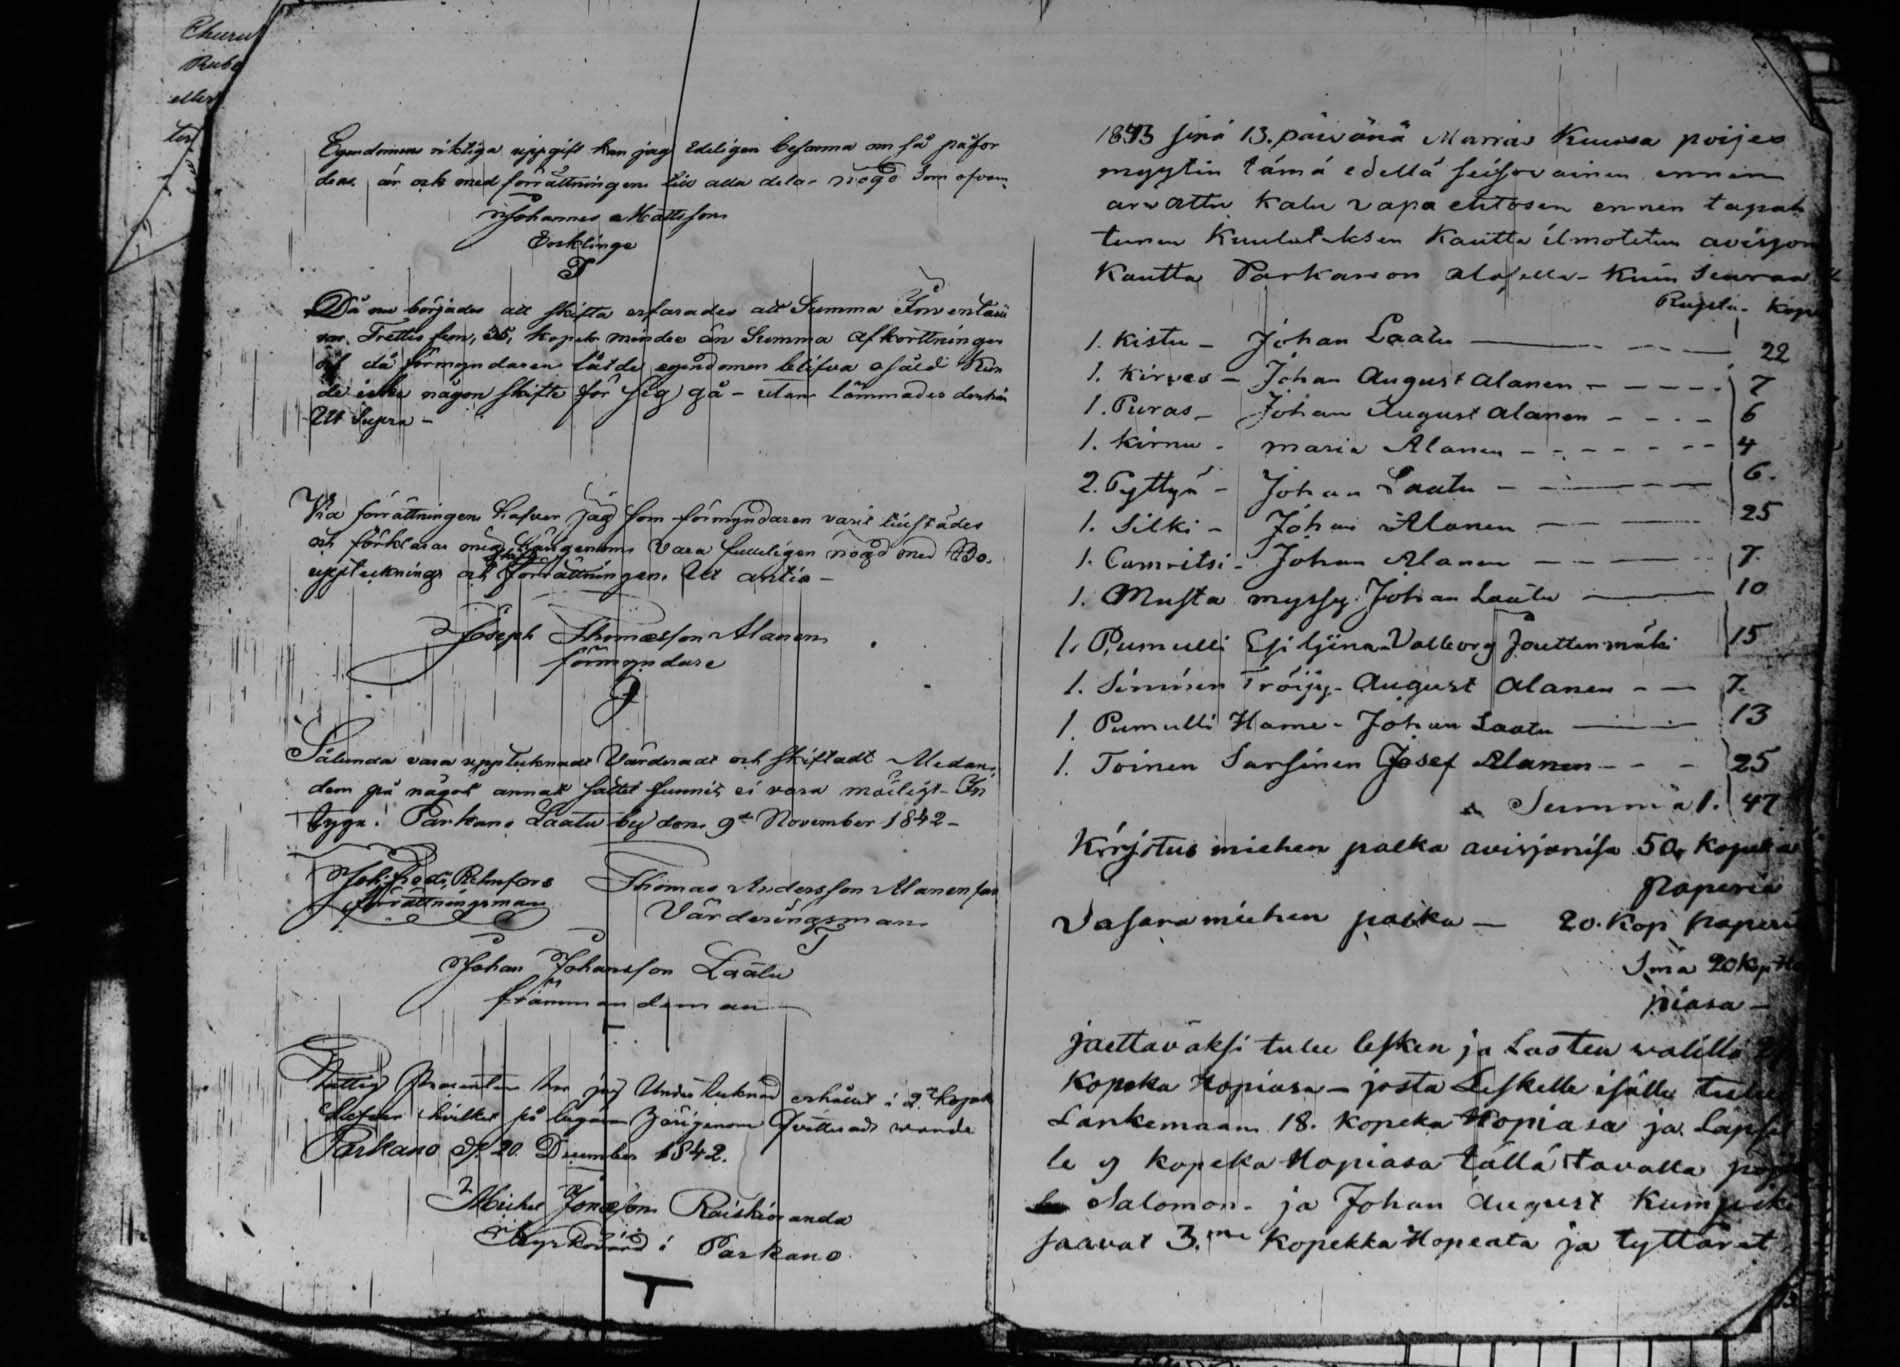 Egendomens riktiga uppgift kan jag Edeligen besanna om så påfor
dras, är och med förrättningen till alla delar nögd Som ofvan
Johannes Mattsson
Encklinge
Då nu börjades att skifta erfarades att Summa Inventari
um Trettio fem, 35, kopek mindre än Summa Afkorttningen
och då förmyndaren låtde egendomen blifva osåld Kun
de icke någon skifte för sig gå - utan lämmades dertill
Ut Supra -
Via förrättningen hafver jag som förmyndaren varit tillstädes
och förklarar mig härigenom vara fulleligen nögd med Bo
upptecknings och skifts förrättningen. Ut antia -
Joseph Thomasson Alanen
förmyndare
Sålunda vara upptecknadt Värderadt och skiftadt
dem på något annat sättet funnit ei vara möiligt - In
tyga: Parkano Laatu by den 9de November 1842 -
förrättningsman
Thomas Andersson Alanen
Värderingsman
Johan Johansson Laatu
främmandeman
Fattig Procenten har jag Undertecknad erhållit i 2 kopek
Silfver hvilket på begäran härigenom Qvitterads warde
Parkano d. 20 December 1842.
Michel Jonasson Raiskioranda
Kyrkovärd i Parkano
1843 sinä 13. päivänä Marras Kuussa poijes
myytin tämä edellä seisovainen ennen
arvattu kalu vapa ehtosen ennen tapah
tunen Kuulutuksen Kautta ilmotetun avisjon
Kautta Parkanon alasella - Kuin Seuraa
Rupla - Kop
1. Kistu - Johan Laatu 22
1. Kirves - Johan August Alanen 7
1. Puras - Johan August Alanen 6
1. Kirnu - maria Alanen 4
2. Pyttyä - Johan Laatu 6.
1. Silki - Johan Alanen 25
1. Camritsi - Johan Alanen 7.
1. Musta myssy. Johan Laatu 10
1. Pumulli Esiljina - Valborg Jouttenmäki 15
1. Sininen Tröijy - August Alanen 7.
1. Pumulli Hame - Johan Laatu 13
1. Toinen Sarsinen Josef Alanen 25
Summa 1. 47
Kirjotus miehen palka avisjonisa 50 Kopeka
paperia
Vasara miehen palka - 20. Kop paperi
Sma 20 Kop Ho
piasa -
jaettavaksi tulee lesken ja Lasten walillä
Kopeka Hopiasa - josta Leskelle isälle tulee
Lankemaan 18. Kopeka Hopiasa ja Lapsil
le 9 kopeka Hopiasa tällä tavalla
Salomon - ja Johan August Kumpiki
saavat 3.me Kopekka Hopeata ja tyttäret